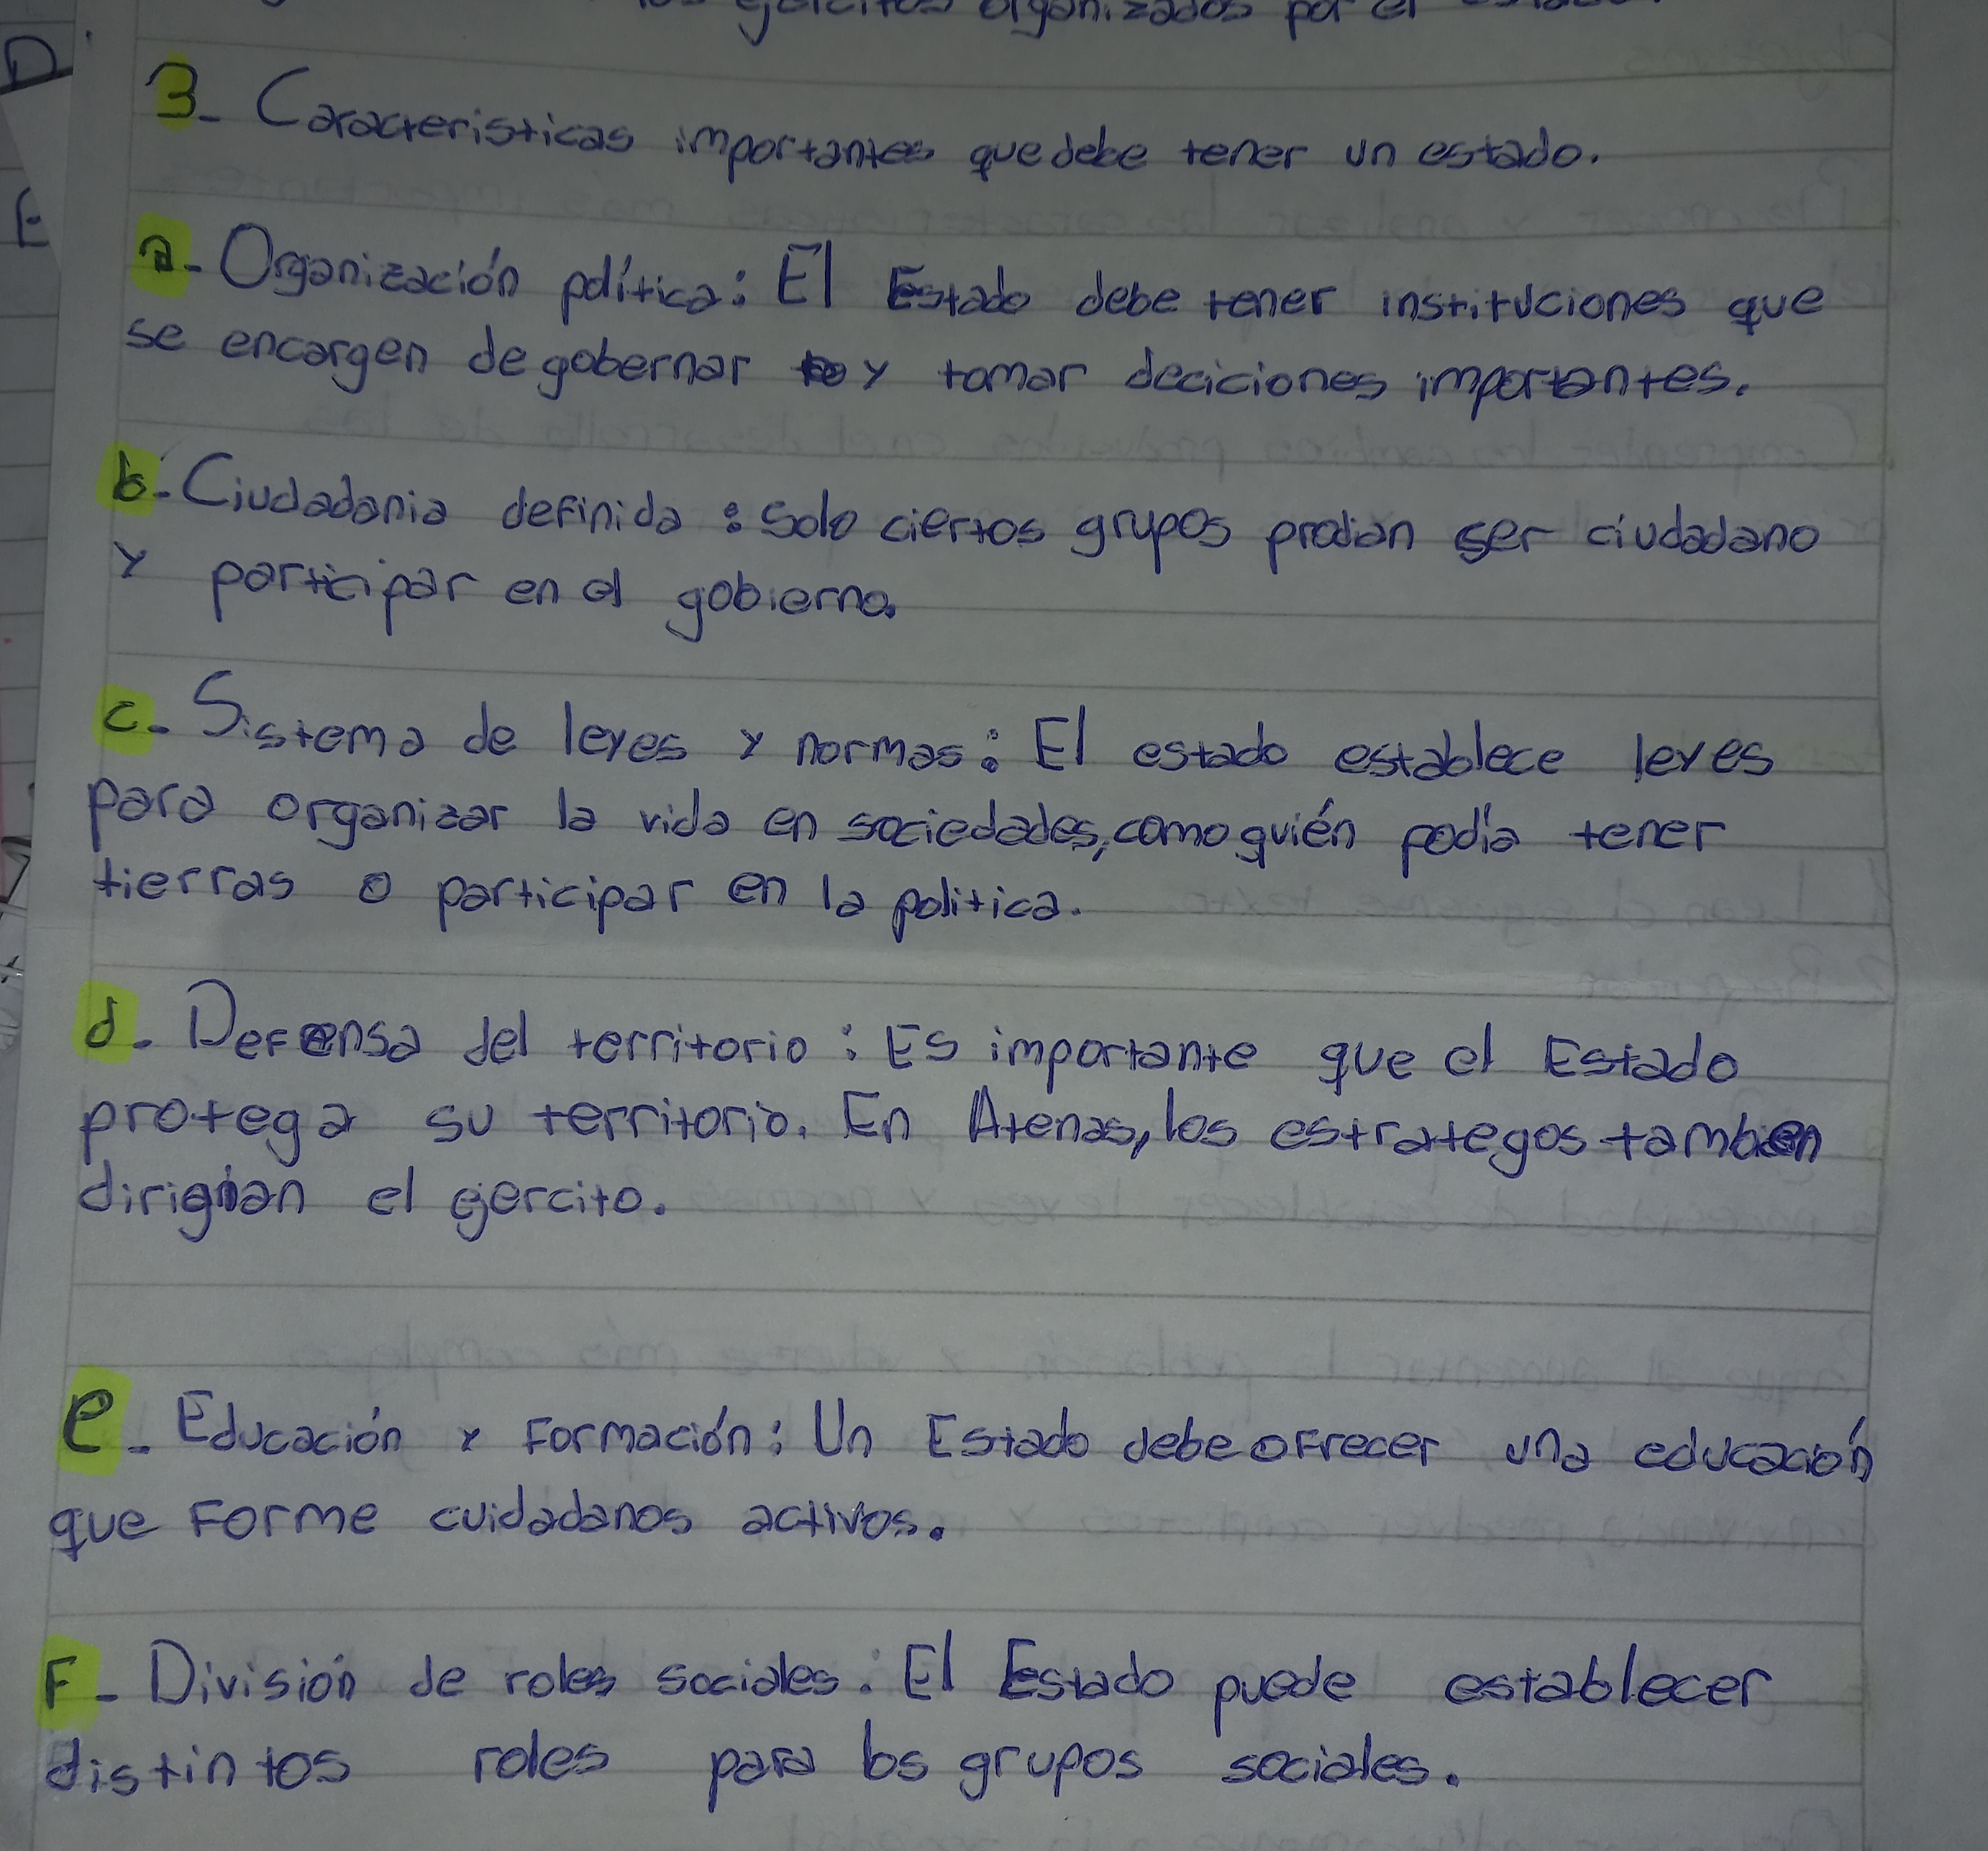 ejercitos organizados por el
3- Caracteristicas importantes que debe tener un estado.
a- Organización política: El Estado debe tener instituciones que
se encargen de gobernar y tomar deciciones importantes.
b- Ciudadania definida: solo ciertos grupos prodian ser ciudadano
y participar en el gobierno.
c- Sistema de leyes y normas: El estado establece leyes
para organizar la vida en sociedades, como quién podía tener
tierras o participar en la politica.
d- Defensa del territorio: Es importante que el Estado
protega su territorio. En Atenas, los estrategos tambien
dirigian el ejercito.
e- Educación y Formación: Un Estado debe ofrecer una educación
que Forme cuidadanos activos.
F- División de roles sociales: El Estado puede establecer
distintos roles para los grupos sociales.